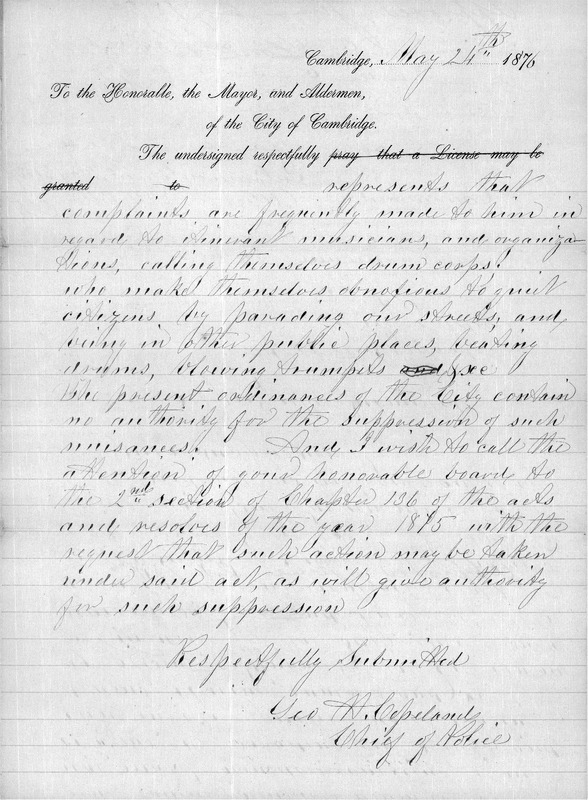 Cambridge, May 24th 1876
To the Honorable, the Mayor, and Aldermen,
of the City of Cambridge.
The undersigned respectfully pray that a License may be
granted to represents that
complaints are frequently made to him in
regard to itinerant musicians, and organiza
tions, calling themselves drum corps.
who make themselves obnoxious to quiet
citizens by parading our streets, and,
being in other public places, beating
drums, blowing trumpets and &c
The present ordinances of the City contain
no authority for the suppression of such
nuisances. And I wish to call the
attention of your honorable board to
the 2nd section of Chapter 136 of the acts
and resolves of the year 1875 with the
request that such action may be taken
under said act, as will give authority
for such suppression
Respectfully Submitted
Geo H. Copeland
Chief of Police